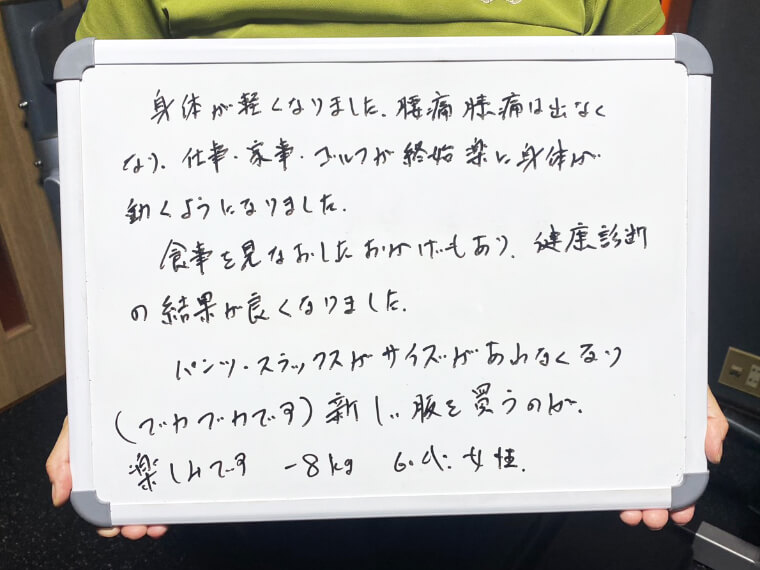 身体が軽くなりました。腰痛膝痛は出なく
なり、仕事・家事・ゴルフが終始楽に身体が
動くようになりました。
食事を見なおしたおかげもあり、健康診断
の結果が良くなりました。
パンツ・スラックスがサイズがあわなくなり
(ブカブカです)新しい服を買うのが、
楽しみです -8kg 60代 女性.